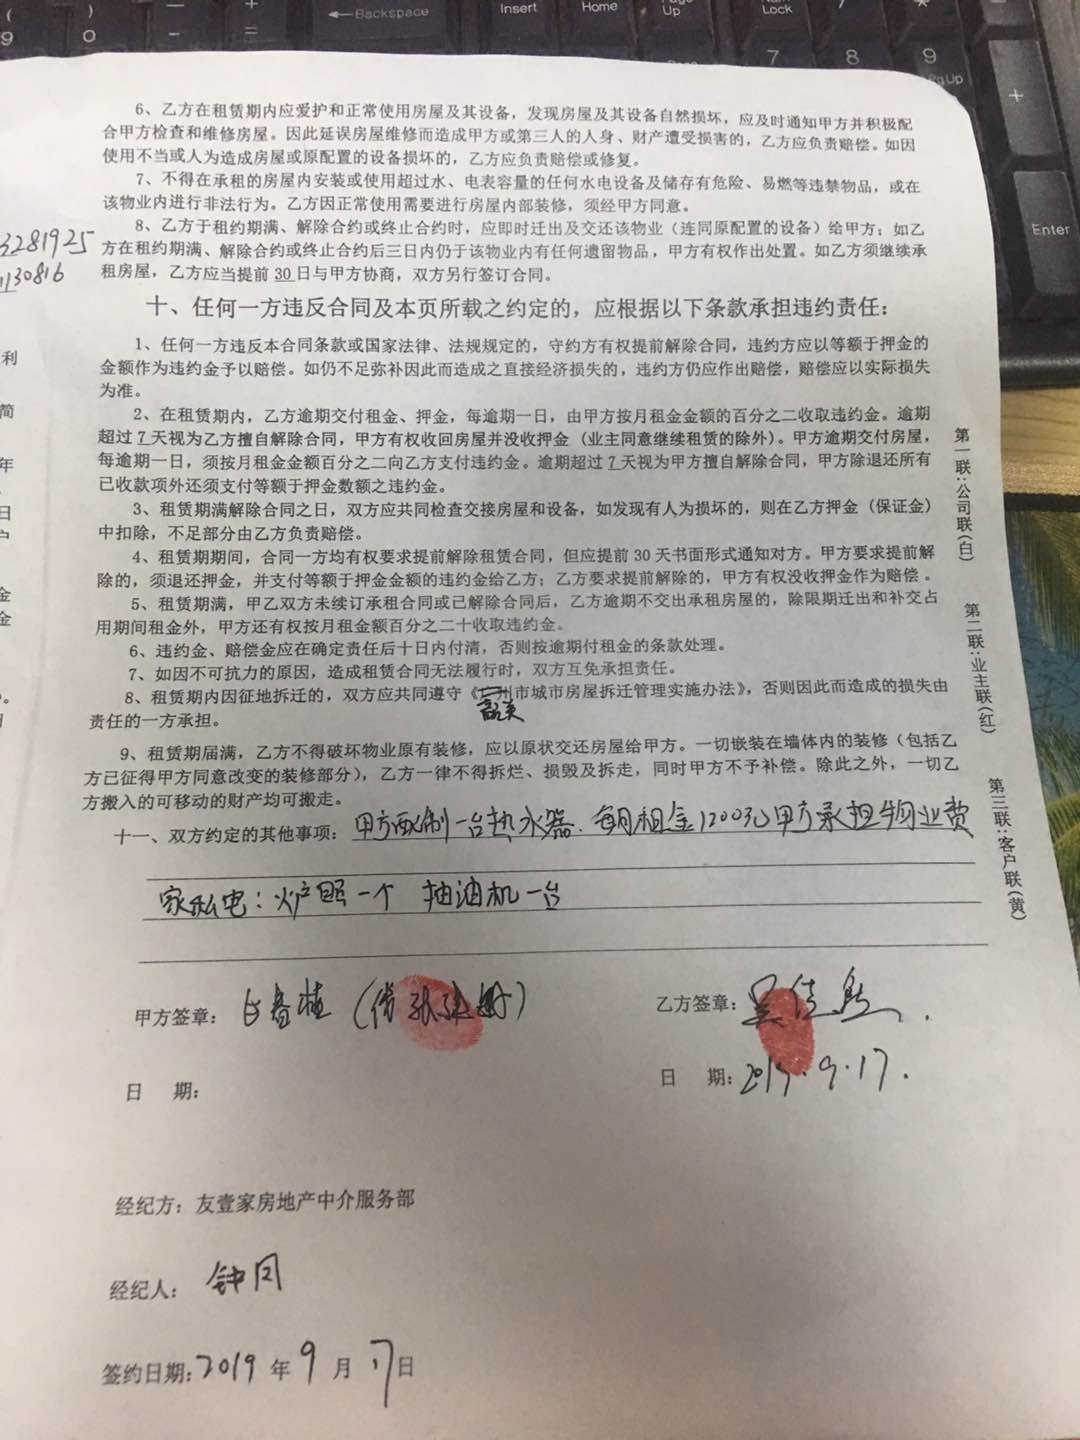 Backspace
Insert
Home
Page
Up
Num
Lock
(
)
9
0
-
=
+
7
8
9
PgUp
+
Enter
6、乙方在租赁期内应爱护和正常使用房屋及其设备，发现房屋及其设备自然损坏，应及时通知甲方并积极配
合甲方检查和维修房屋。因此延误房屋维修而造成甲方或第三人的人身、财产遭受损害的，乙方应负责赔偿。如因
使用不当或人为造成房屋或原配置的设备损坏的，乙方应负责赔偿或修复。
7、不得在承租的房屋内安装或使用超过水、电表容量的任何水电设备及储存有危险、易燃等违禁物品，或在
该物业内进行非法行为。乙方因正常使用需要进行房屋内部装修，须经甲方同意。
8、乙方于租约期满、解除合约或终止合约时，应即时迁出及交还该物业（连同原配置的设备）给甲方；如乙
方在租约期满、解除合约或终止合约后三日内仍于该物业内有任何遗留物品，甲方有权作出处置。如乙方须继续承
租房屋，乙方应当提前 30 日与甲方协商，双方另行签订合同。
3281925
1130816
十、任何一方违反合同及本页所载之约定的，应根据以下条款承担违约责任：
1、任何一方违反本合同条款或国家法律、法规规定的，守约方有权提前解除合同，违约方应以等额于押金的
金额作为违约金予以赔偿。如仍不足弥补因此而造成之直接经济损失的，违约方仍应作出赔偿，赔偿应以实际损失
为准。
2、在租赁期内，乙方逾期交付租金、押金，每逾期一日，由甲方按月租金金额的百分之二收取违约金。逾期
超过 7 天视为乙方擅自解除合同，甲方有权收回房屋并没收押金（业主同意继续租赁的除外）。甲方逾期交付房屋，
每逾期一日，须按月租金金额百分之二向乙方支付违约金。逾期超过 7 天视为甲方擅自解除合同，甲方除退还所有
已收款项外还须支付等额于押金数额之违约金。
3、租赁期满解除合同之日，双方应共同检查交接房屋和设备，如发现有人为损坏的，则在乙方押金（保证金）
中扣除，不足部分由乙方负责赔偿。
4、租赁期期间，合同一方均有权要求提前解除租赁合同，但应提前 30 天书面形式通知对方。甲方要求提前解
除的，须退还押金，并支付等额于押金金额的违约金给乙方；乙方要求提前解除的，甲方有权没收押金作为赔偿 。
5、租赁期满，甲乙双方未续订承租合同或已解除合同后，乙方逾期不交出承租房屋的，除限期迁出和补交占
用期间租金外，甲方还有权按月租金额百分之二十收取违约金。
6、违约金、赔偿金应在确定责任后十日内付清，否则按逾期付租金的条款处理。
7、如因不可抗力的原因，造成租赁合同无法履行时，双方互免承担责任。
8、租赁期内因征地拆迁的，双方应共同遵守《广州市城市房屋拆迁管理实施办法》，否则因此而造成的损失由
韶关
责任的一方承担。
9、租赁期届满，乙方不得破坏物业原有装修，应以原状交还房屋给甲方。一切嵌装在墙体内的装修（包括乙
方已征得甲方同意改变的装修部分），乙方一律不得拆烂、损毁及拆走，同时甲方不予补偿。除此之外，一切乙
方搬入的可移动的财产均可搬走。
十一、双方约定的其他事项：甲方配制一台热水器．每月租金1200元 甲方承担物业费
家私电：炉 一个 抽油机一台
甲方签章：
乙方签章：
日 期：
日 期：2019.9.17.
经纪方：友壹家房地产中介服务部
经纪人：钟
签约日期：2019 年 9 月 17 日
第一联：公司联（白）
第二联：业主联（红）
第三联：客户联（黄）
利
简
年
日
户
金
金